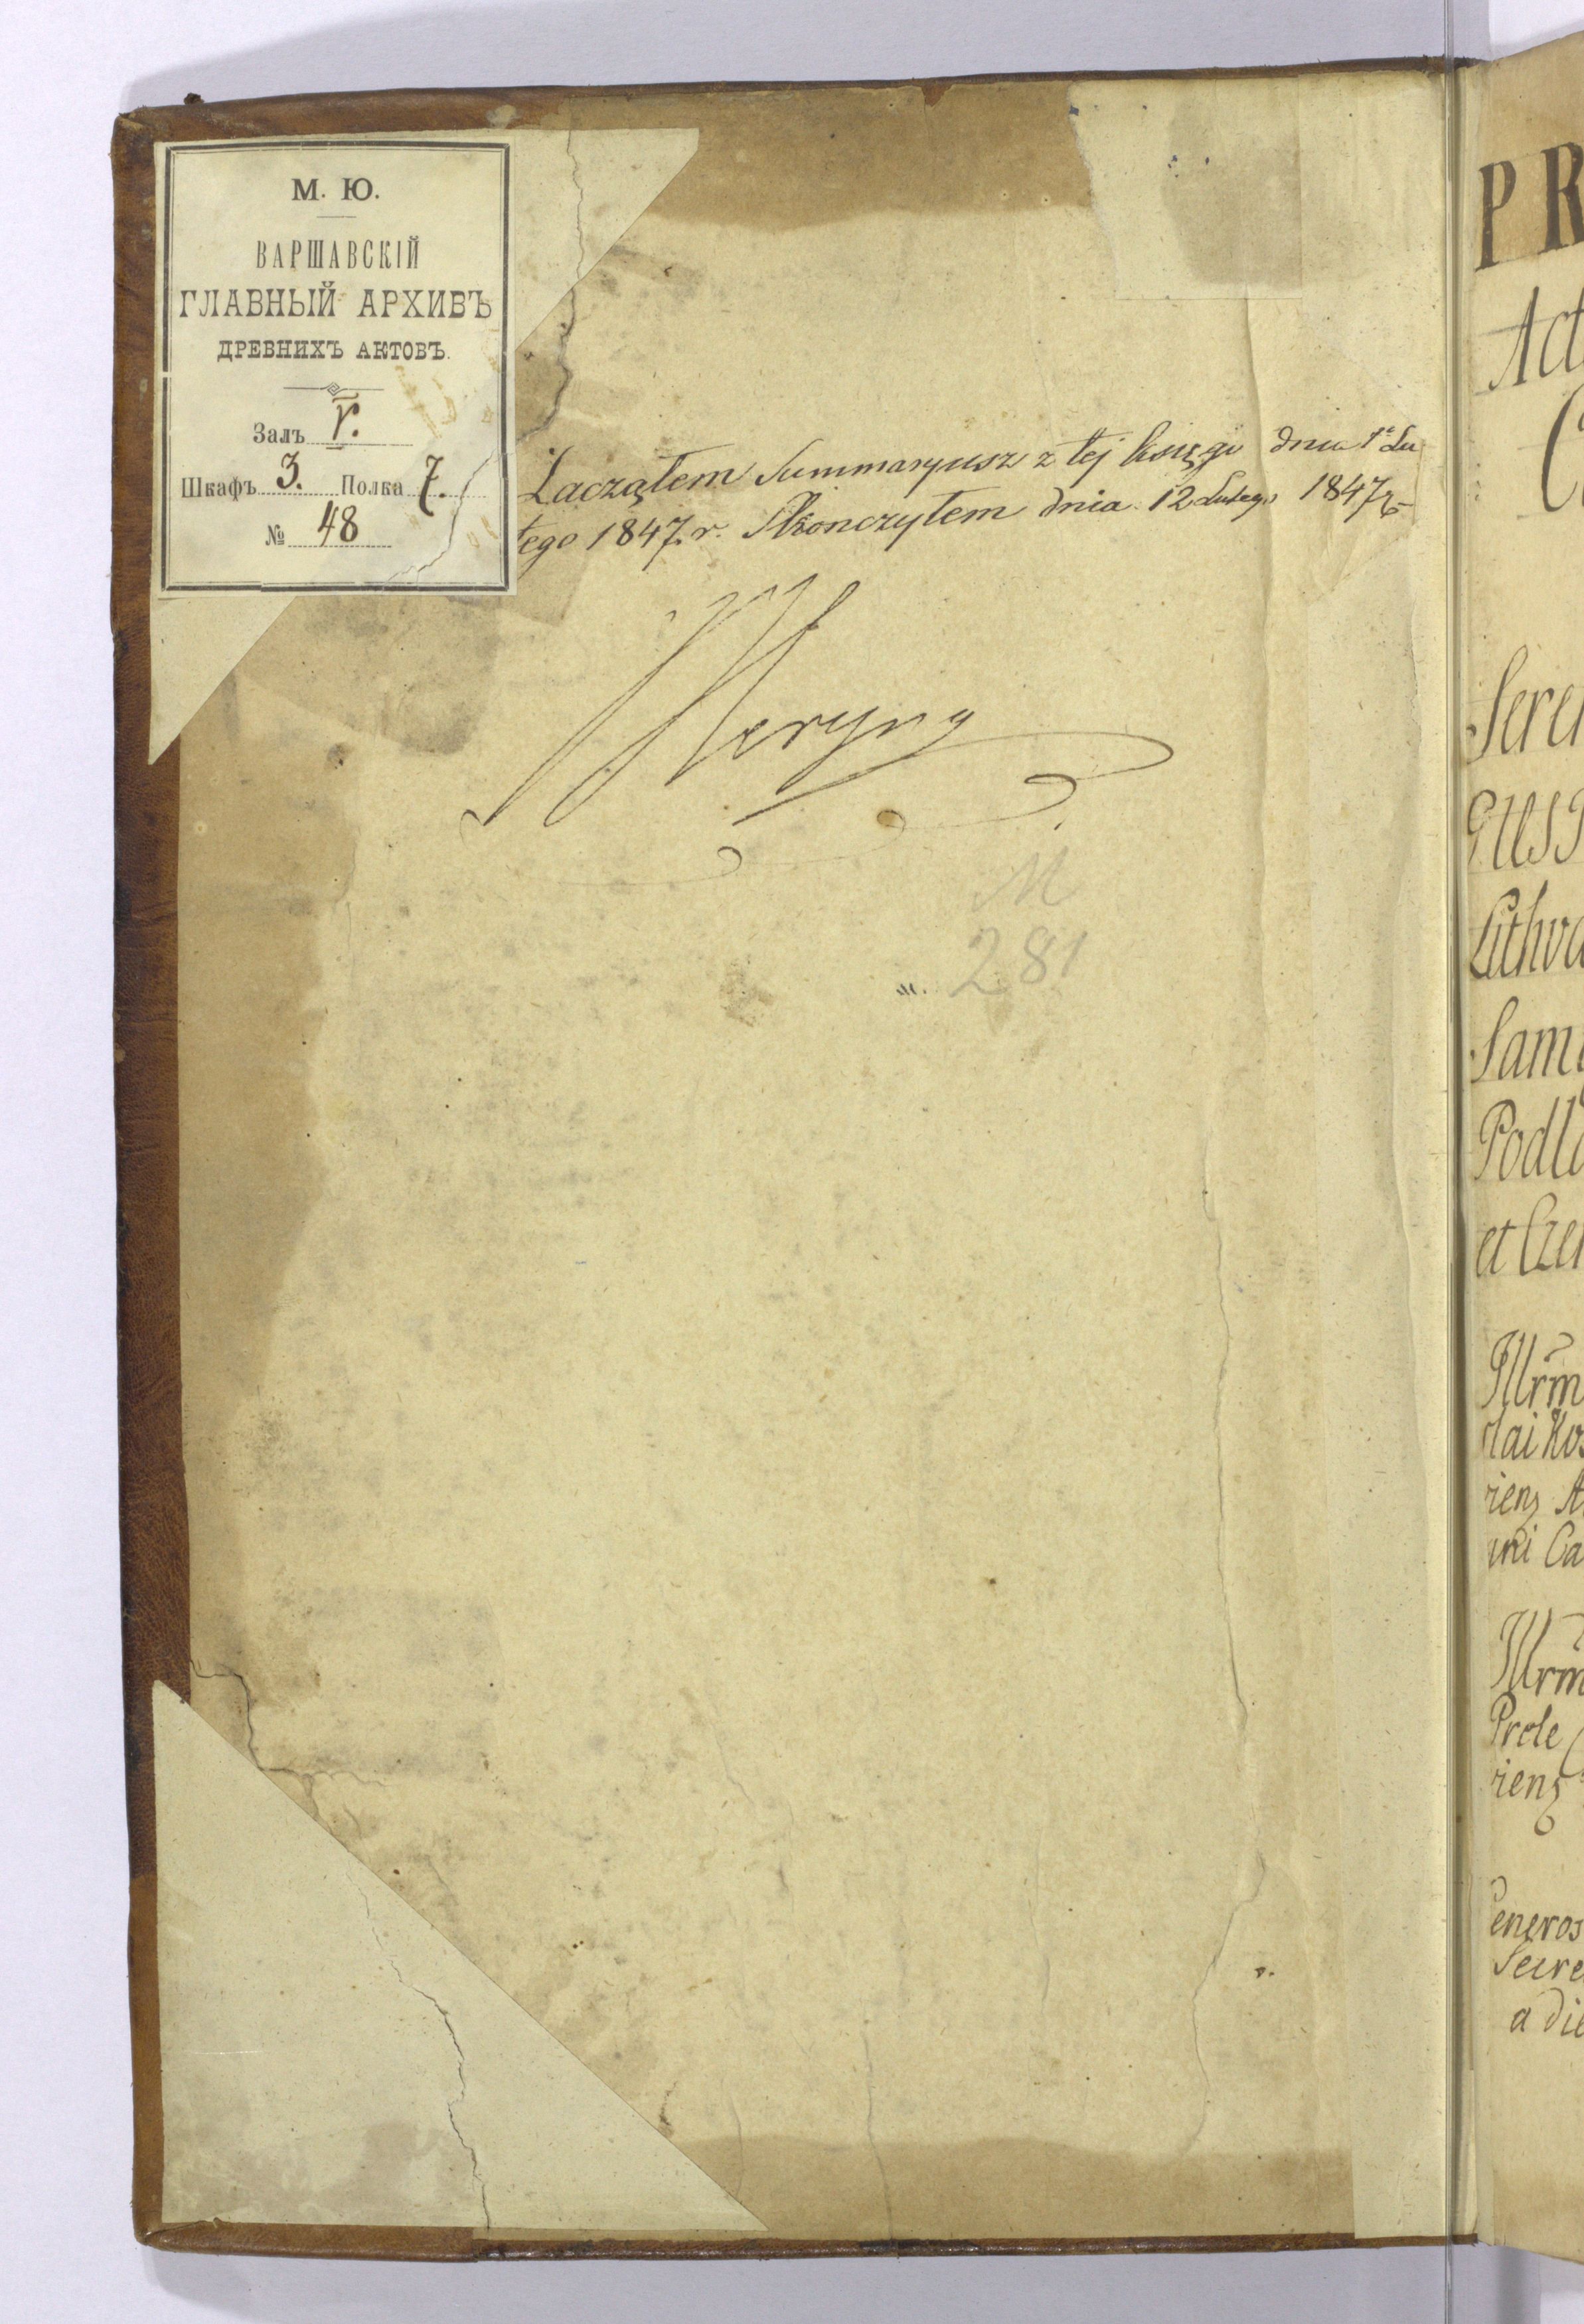 М. Ю.
ВАРШАВСКІЙ
ГЛАВНЫЙ АРХИВЪ
ДРЕВНИХЪ АКТОВЪ.
Залъ V.
Шкафъ 3. Полка 7.
№ 48
Zacząłem Summaryusz z tej księgi dnia 1º Lu
tego 1847. r. Skonczyłem dnia 12 Lutego 1847 r
Heryng
M
281
PR
Act
C
Seren
GUST
Lithva
Sam
Podla
et Czer
Illrm
lai Kos
riens A
uni Ca
Illrm
Prole
riens
eneros
Secre
a die